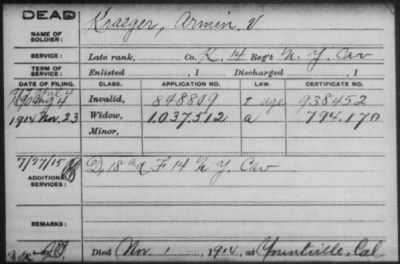 DEAD
NAME OF SOLDIER: Kraeger, Armin V
SERVICE: Late rank, Co. K. 14 Reg't N. Y. Cav
TERM OF SERVICE: Enlisted , 1 Discharged , 1
DATE OF FILING. CLASS. APPLICATION NO. LAW. CERTIFICATE NO.
Aug 4 Invalid, 848819 age 938452
1914 Nov. 23 Widow, 1.037.512 a 794.170
Minor,
7/27/15
ADDITIONAL SERVICES: D, 18 F 14 N. Y. Cav
REMARKS:
Died Nov. 1, 1914, at Yountville, Cal.